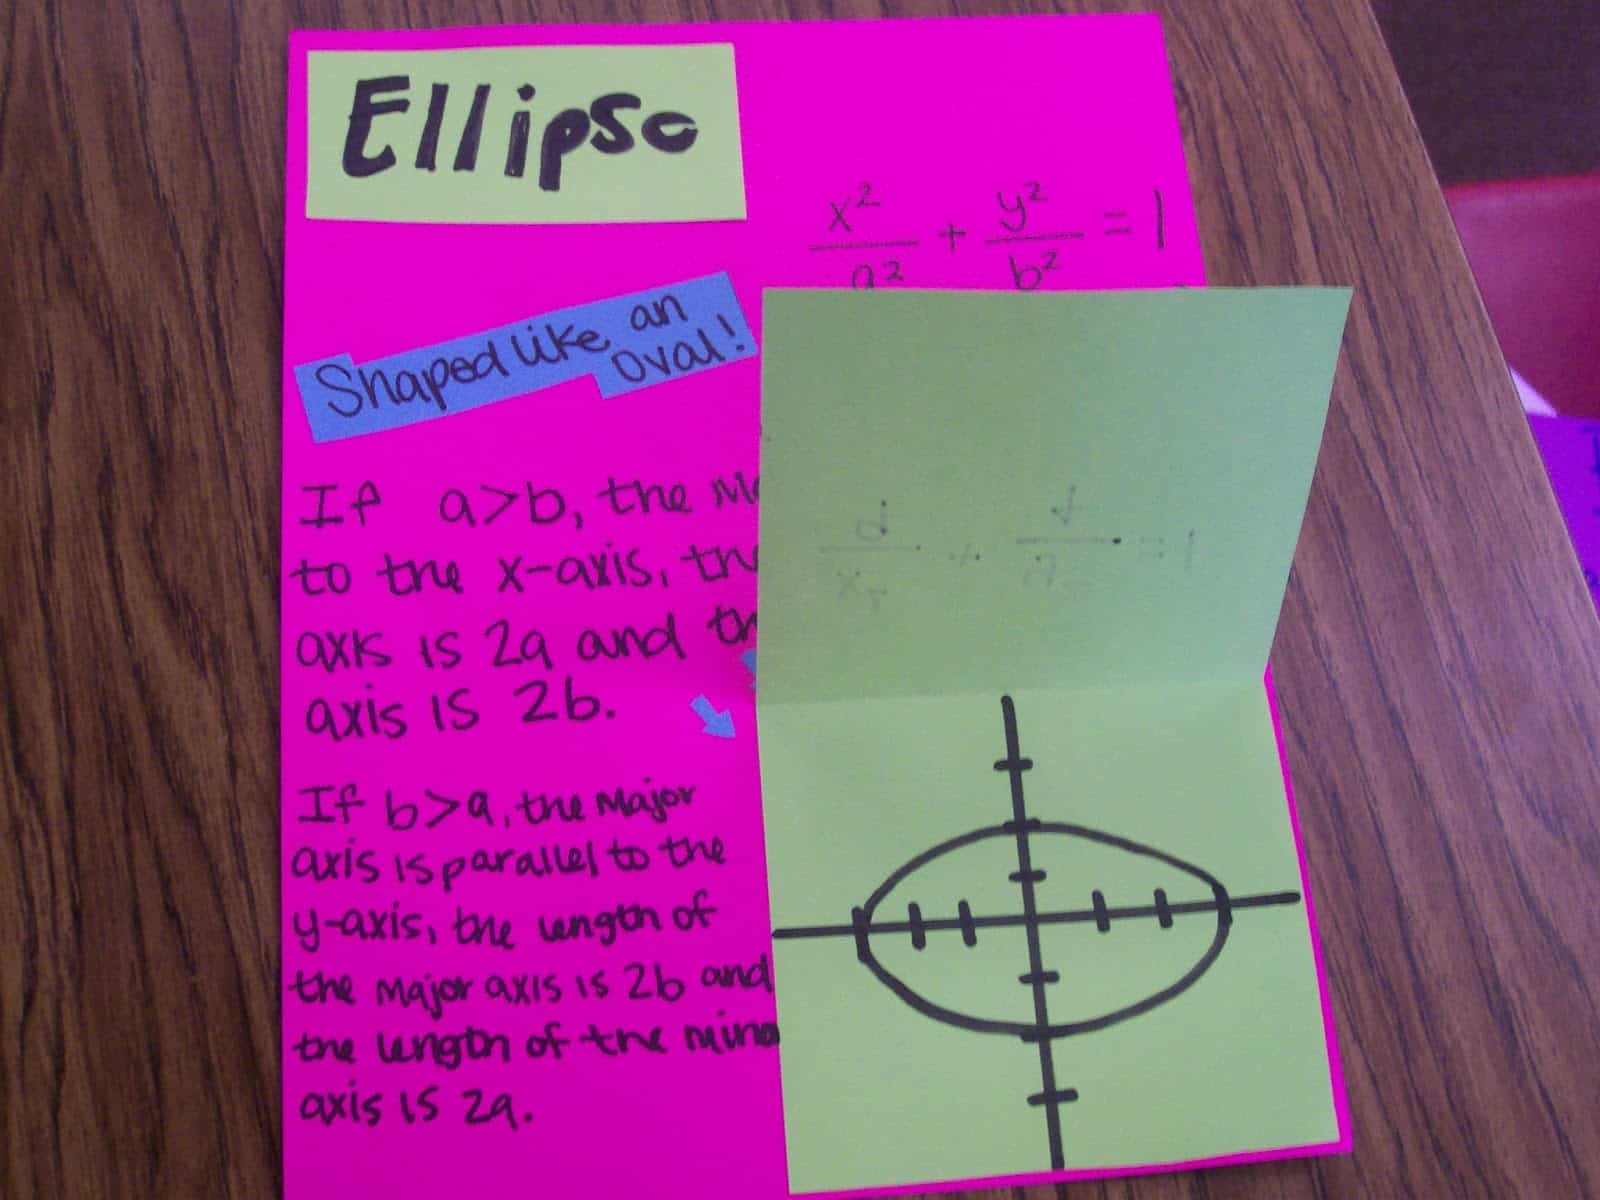 Ellipse
x²/a² + y²/b² = 1
Shaped like an
oval!
If a>b, the
to the x-axis, the
axis is 2a and th
axis is 2b.
If b>a, the Major
axis is parallel to the
y-axis, the length of
the Major axis is 2b and
the length of the mino
axis is 2a.